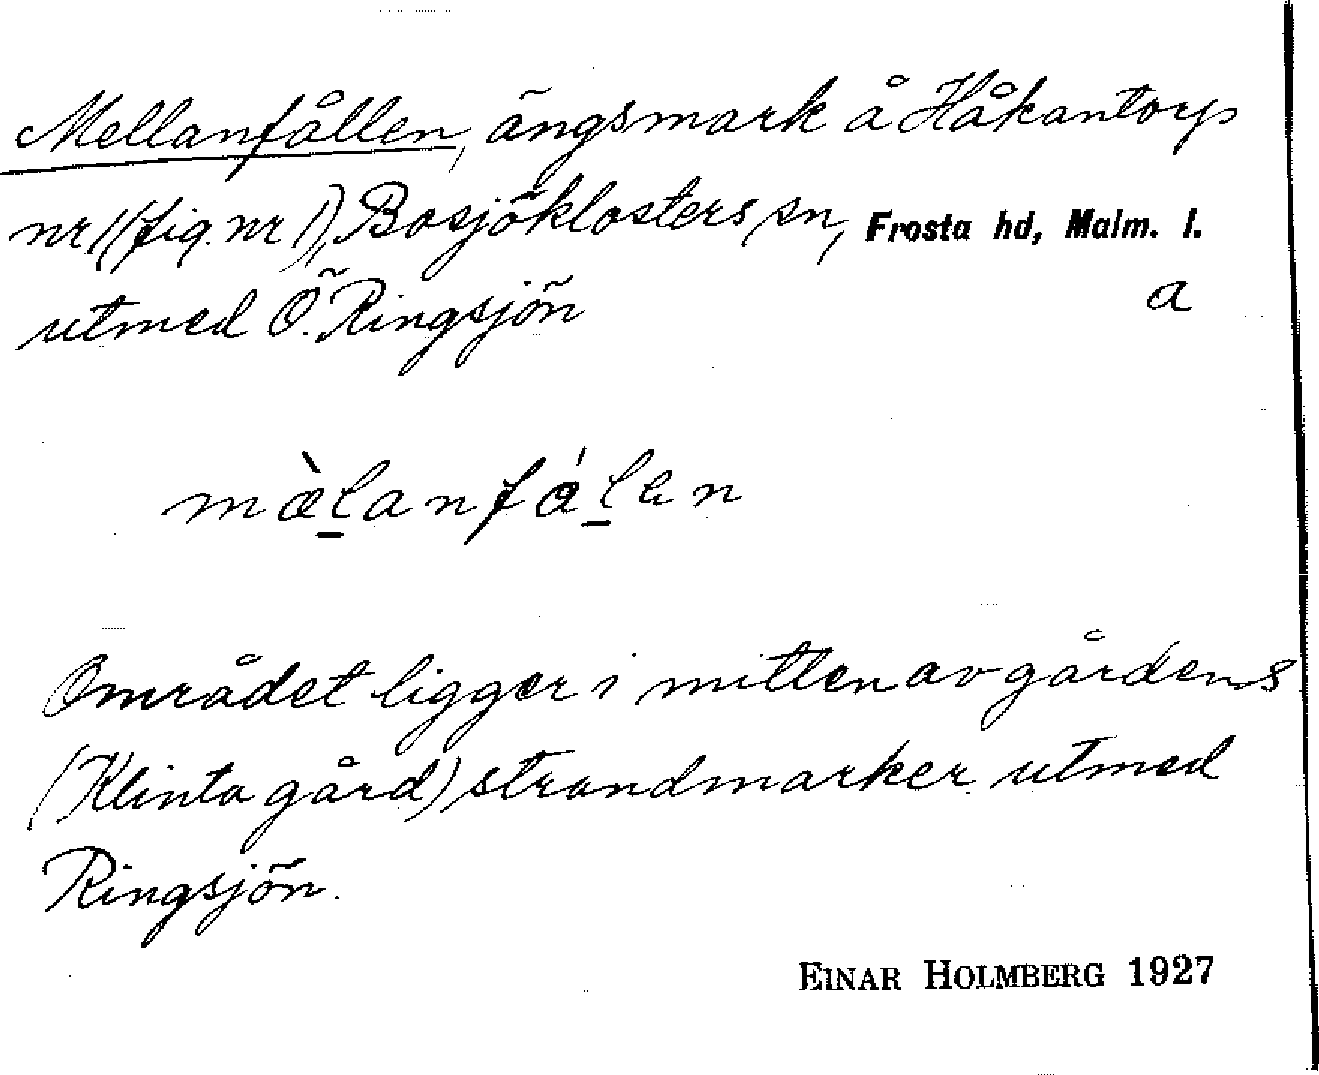 Mellanfållen, ängsmark å Håkantorp
nr 1 (fig. nr 1), Bosjöklosters sn, Frosta hd, Malm. l.
utmed Ö. Ringsjön a
mæ̀l̲anfál̲en
Området ligger i mitten av gårdens
(Klinta gård) strandmarker utmed
Ringsjön.
EINAR HOLMBERG 1927